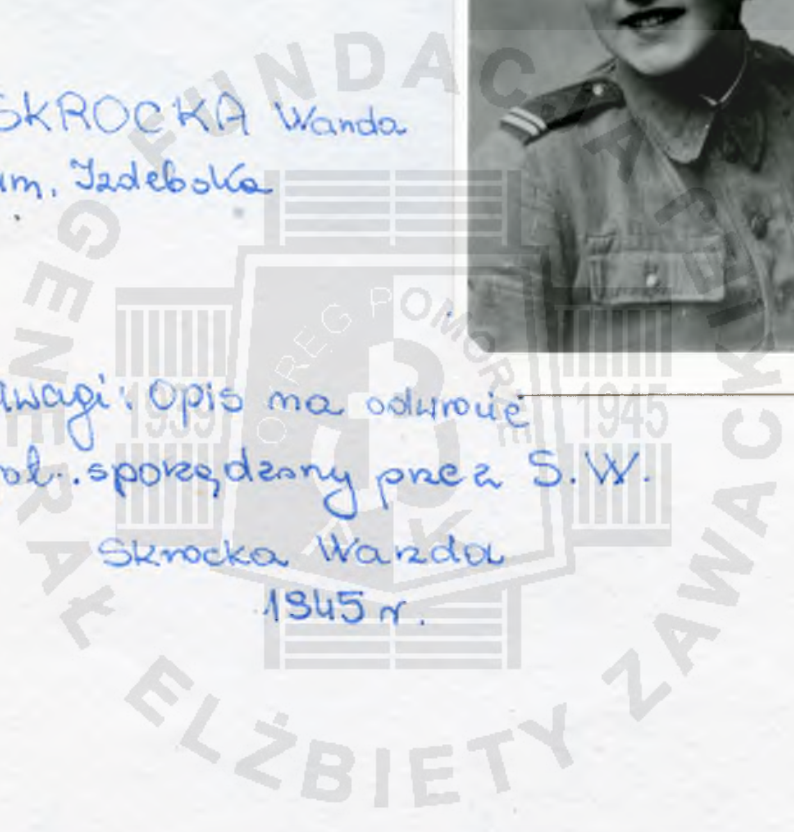 SKROCKA Wanda
zam. Izdebska
uwagi: Opis na odwrocie
fot. sporządzony przez S.W.
Skrocka Wanda
1945 r.
FUNDACJA GENERAŁ ELŻBIETY ZAWACKIEJ
OKRĘG POMORZE
1939 1945
AK